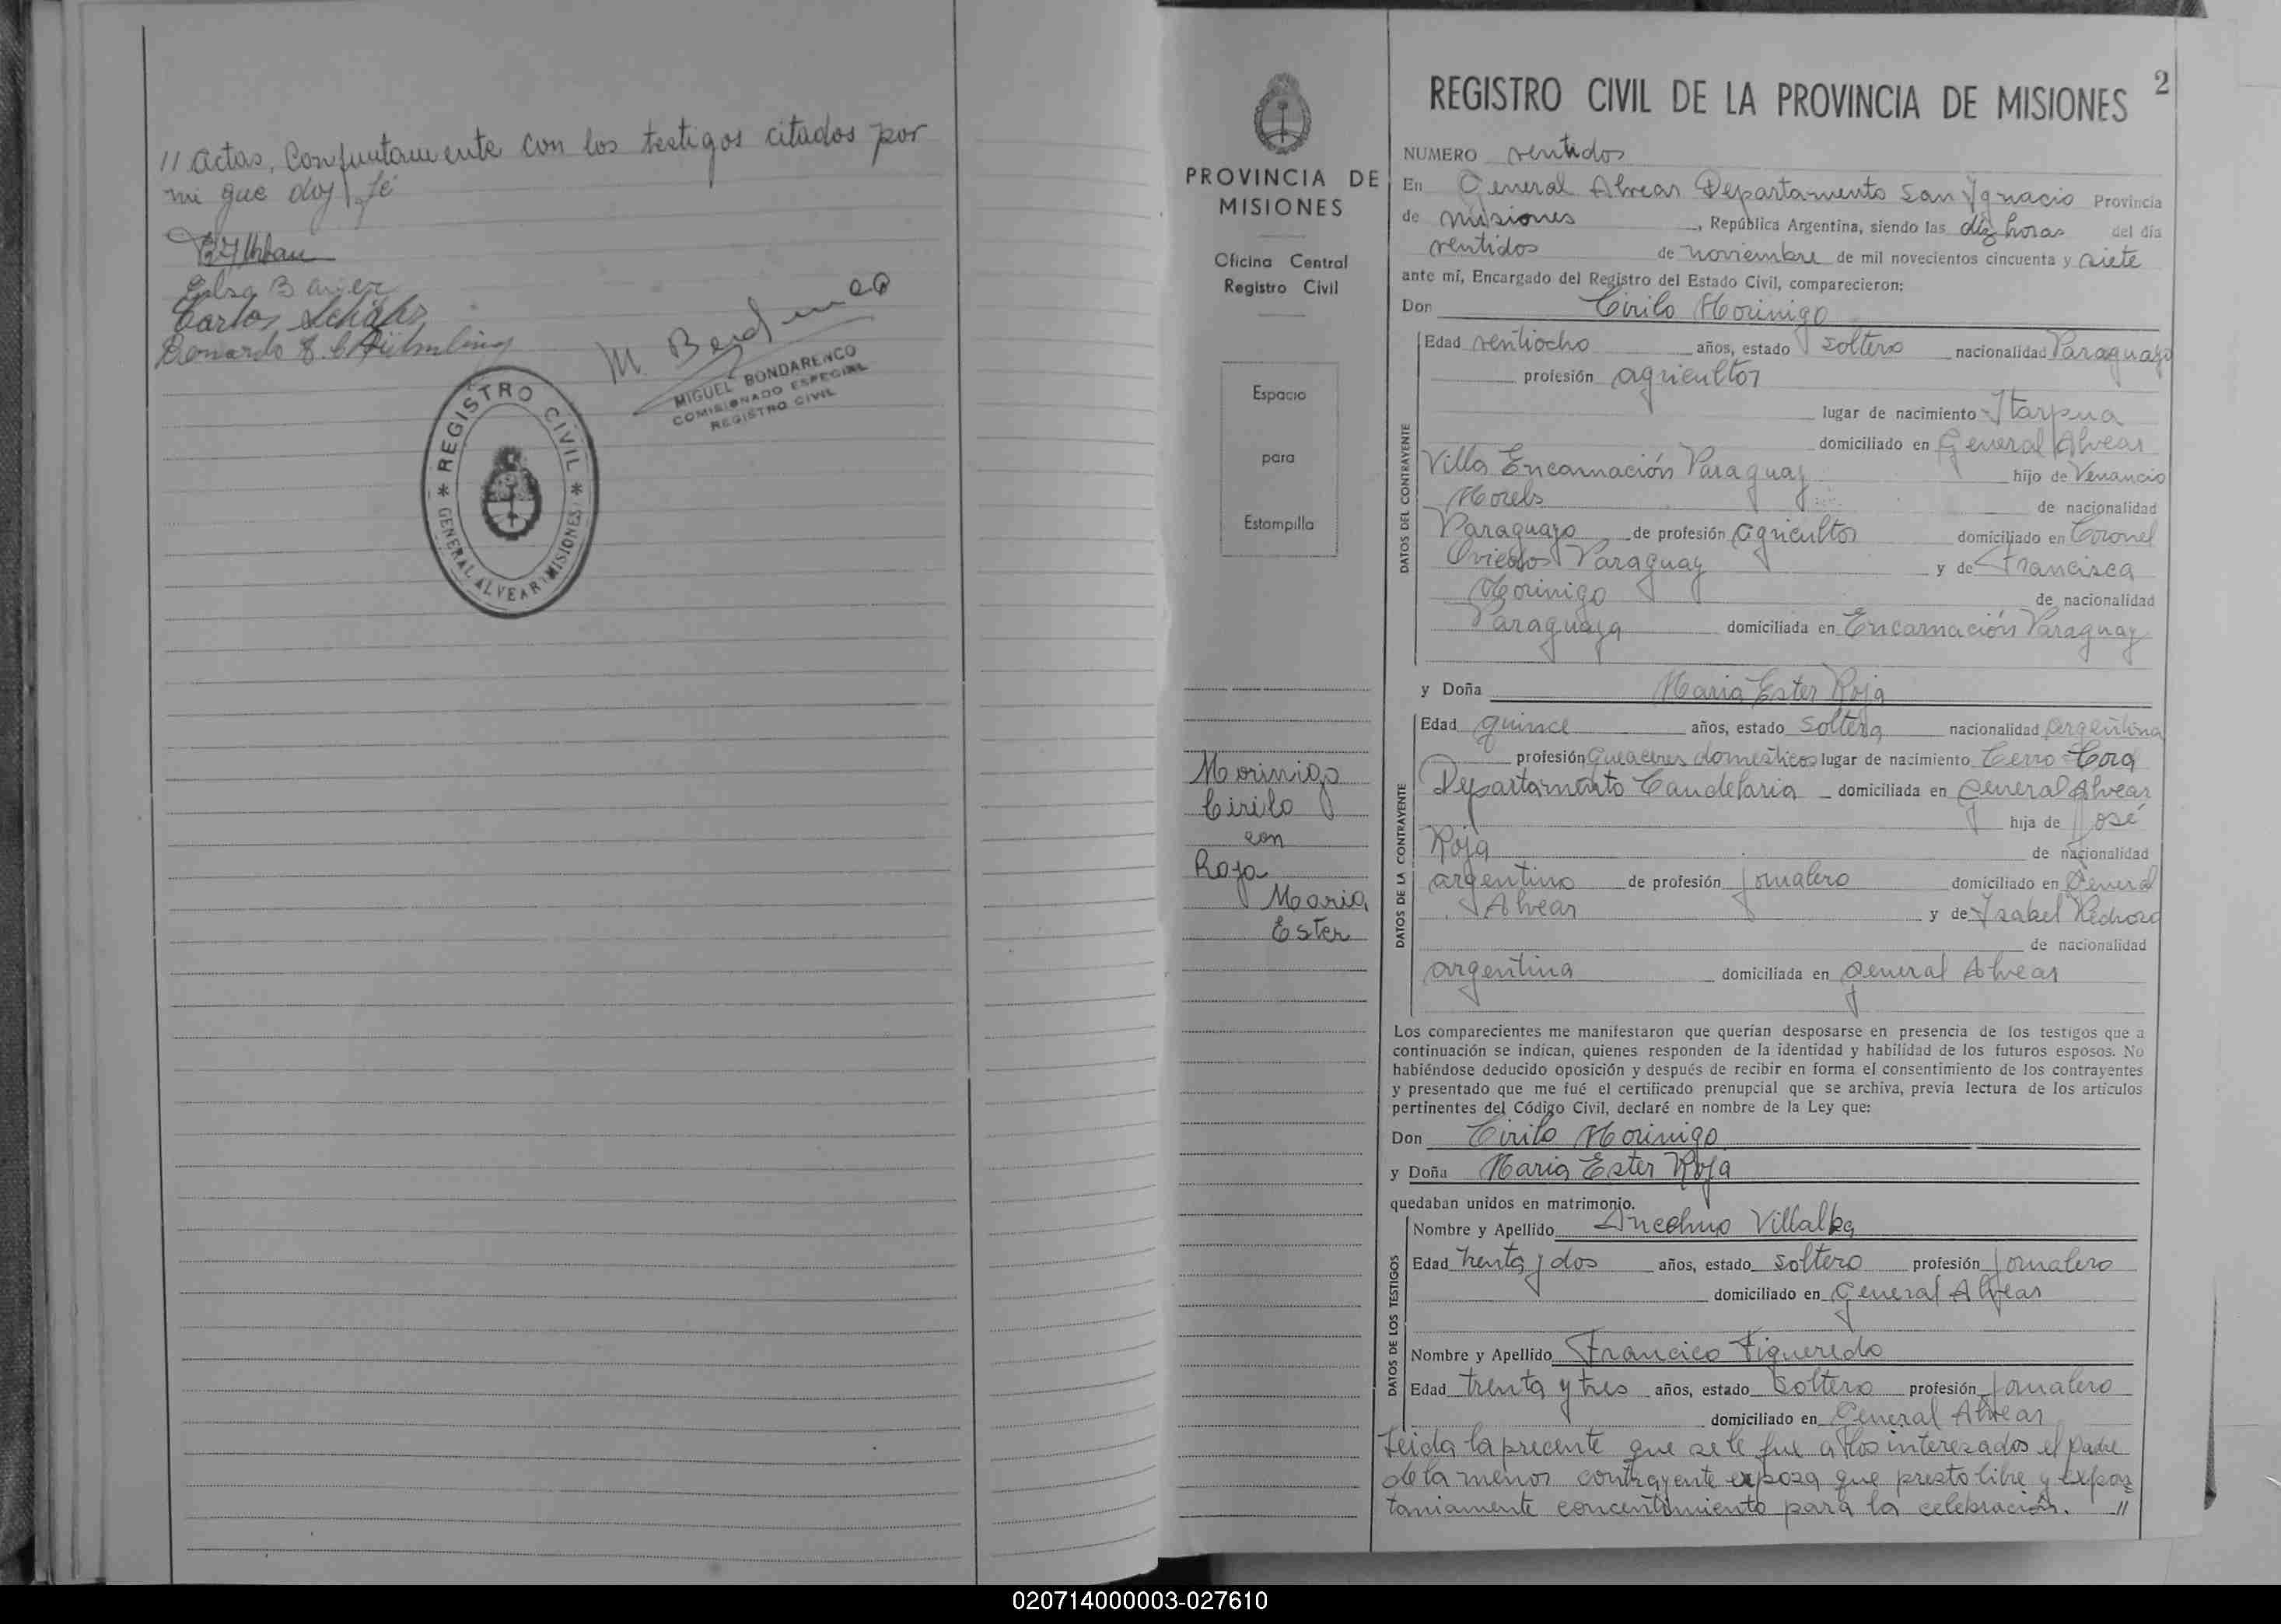 // actas, Conjuntamente con los testigos citados por
mi que doy fé
Elsa Bauer
Carlos
MIGUEL BONDARENCO
COMISIONADO ESPECIAL
REGISTRO CIVIL
* REGISTRO CIVIL *
GENERAL ALVEAR (MISIONES)
2
PROVINCIA DE
MISIONES
Oficina Central
Registro Civil
Espacio
para
Estampilla
Morinigo
Cirilo
con
Roja
Maria
Ester
REGISTRO CIVIL DE LA PROVINCIA DE MISIONES
NUMERO ventidos
En General Alvear Departamento San Ignacio Provincia
de misiones, República Argentina, siendo las diez horas del día
ventidos de noviembre de mil novecientos cincuenta y siete
ante mí, Encargado del Registro del Estado Civil, comparecieron:
Don Cirilo Morinigo
DATOS DEL CONTRAYENTE
Edad ventiocho años, estado soltero nacionalidad Paraguayo
profesión agricultor
lugar de nacimiento Itarpua
domiciliado en General Alvear
Villa Encarnación Paraguay hijo de Venancio
de nacionalidad
Paraguayo de profesión agricultor domiciliado en Coronel
Oviedos Paraguay y de Francisca
Morinigo de nacionalidad
Paraguaya domiciliada en Encarnación Paraguay
y Doña Maria Ester Roja
DATOS DE LA CONTRAYENTE
Edad quince años, estado soltera nacionalidad argentina
profesión domesticos lugar de nacimiento Cerro-Cora
Departamento Candelaria domiciliada en General Alvear
hija de José
Roja de nacionalidad
argentino de profesión jornalero domiciliado en General
Alvear y de Isabel
de nacionalidad
argentina domiciliada en General Alvear
Los comparecientes me manifestaron que querían desposarse en presencia de los testigos que a
continuación se indican, quienes responden de la identidad y habilidad de los futuros esposos. No
habiéndose deducido oposición y después de recibir en forma el consentimiento de los contrayentes
y presentado que me fué el certificado prenupcial que se archiva, previa lectura de los artículos
pertinentes del Código Civil, declaré en nombre de la Ley que:
Don Cirilo Morinigo
y Doña Maria Ester Roja
quedaban unidos en matrimonio.
DATOS DE LOS TESTIGOS
Nombre y Apellido Villalba
Edad trenta y dos años, estado soltero profesión jornalero
domiciliado en General Alvear
Nombre y Apellido Francico Figueredo
Edad trenta y tres años, estado soltero profesión jornalero
domiciliado en General Alvear
Leida la precente que se le fue a los interezados el padre
de la menor contrayente expoza que presto libre y expon
taniamente concentimiento para la celebración. //
020714000003-027610